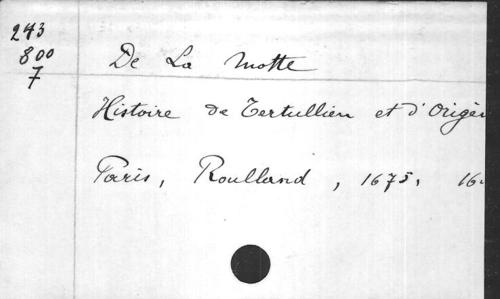 243
800
7
De La Motte
Histoire de Tertullien et d'Origèn
Paris, Roulland, 1675, 16